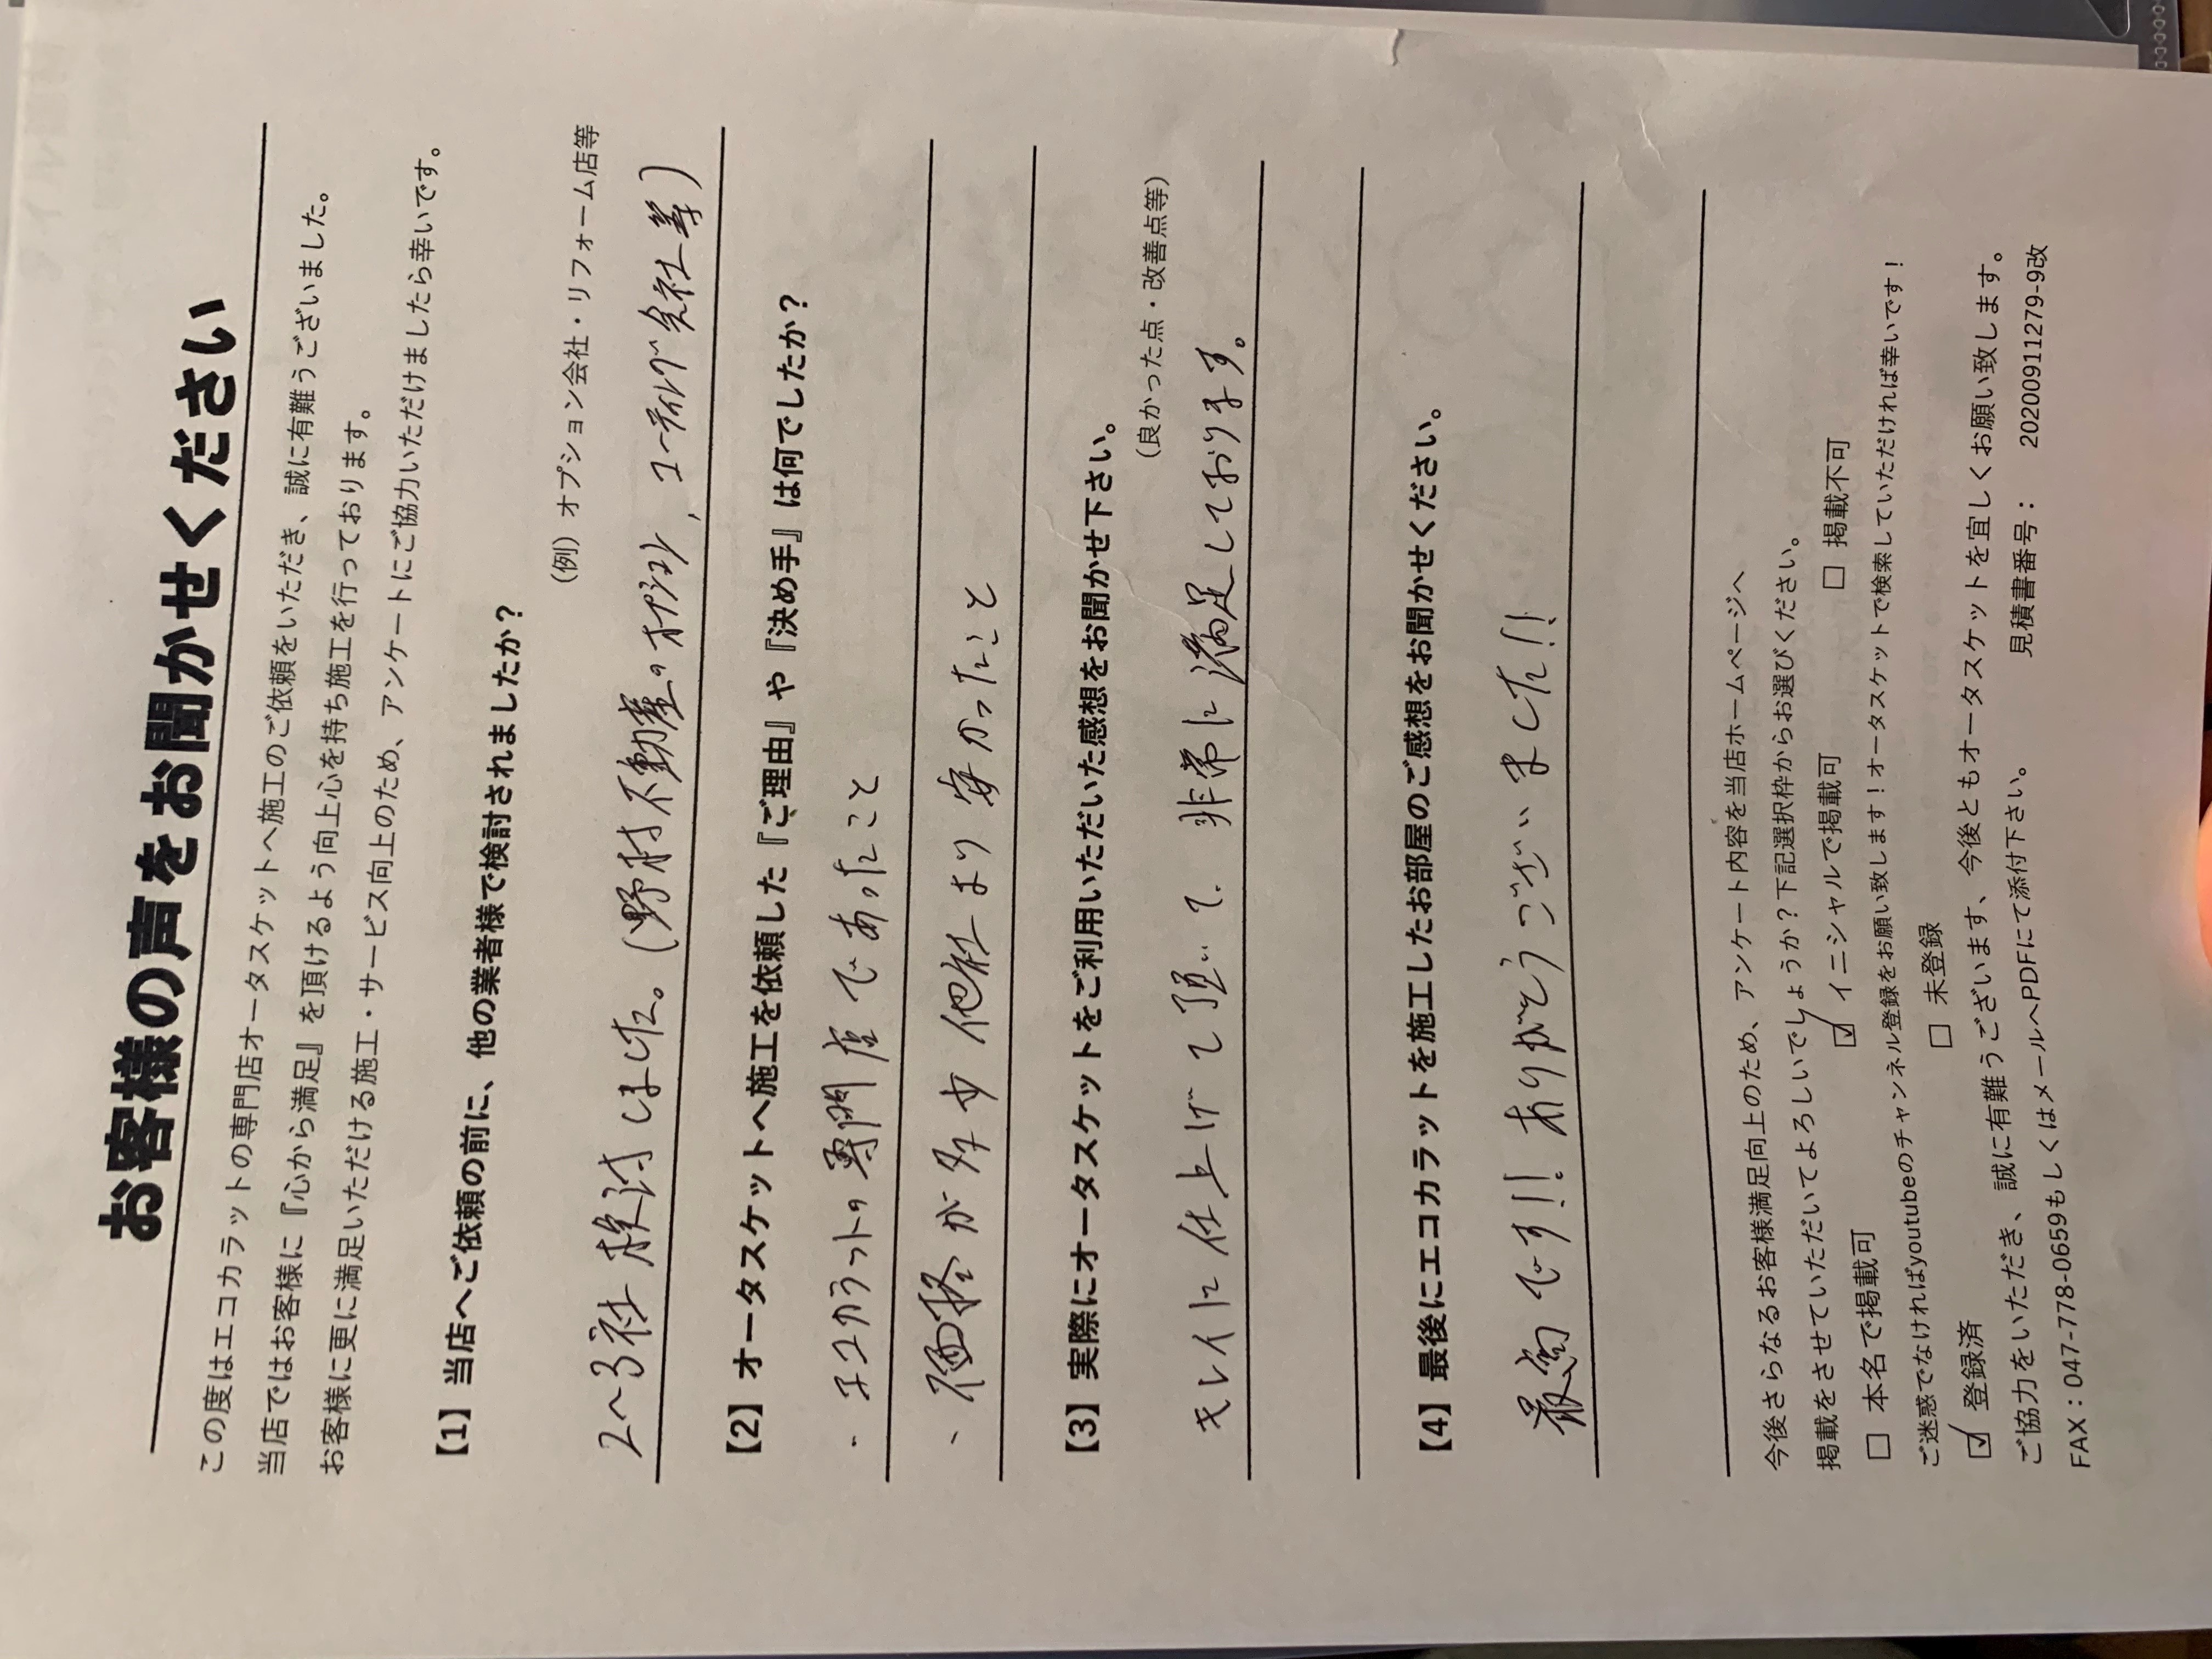 お客様の声をお聞かせください
この度はエコカラットの専門店オータスケットへ施工のご依頼をいただき、誠に有難うございました。
当店ではお客様に『心から満足』を頂けるよう向上心を持ち施工を行っております。
お客様に更に満足いただける施工・サービス向上のため、アンケートにご協力いただけましたら幸いです。
【1】当店へご依頼の前に、他の業者様で検討されましたか？
（例）オプション会社・リフォーム店等
2〜3社検討しました。（野村不動産のオプション、コーティング会社等）
【2】オータスケットへ施工を依頼した『ご理由』や『決め手』は何でしたか？
・エコカラットの専門店であったこと
、価格が多少他社より安かったこと
【3】実際にオータスケットをご利用いただいた感想をお聞かせ下さい。
（良かった点・改善点等）
キレイに仕上げて頂いて、非常に満足しております。
【4】最後にエコカラットを施工したお部屋のご感想をお聞かせください。
最高です!! ありがとうございました!!
今後さらなるお客様満足向上のため、アンケート内容を当店ホームページへ
掲載をさせていただいてよろしいでしょうか？下記選択枠からお選びください。
□ 本名で掲載可 ☑ イニシャルで掲載可 □ 掲載不可
ご迷惑でなければyoutubeのチャンネル登録をお願い致します！オータスケットで検索していただければ幸いです！
☑ 登録済 □ 未登録
ご協力をいただき、誠に有難うございます、今後ともオータスケットを宜しくお願い致します。
FAX：047-778-0659もしくはメールへPDFにて添付下さい。 見積書番号： 20200911279-9改